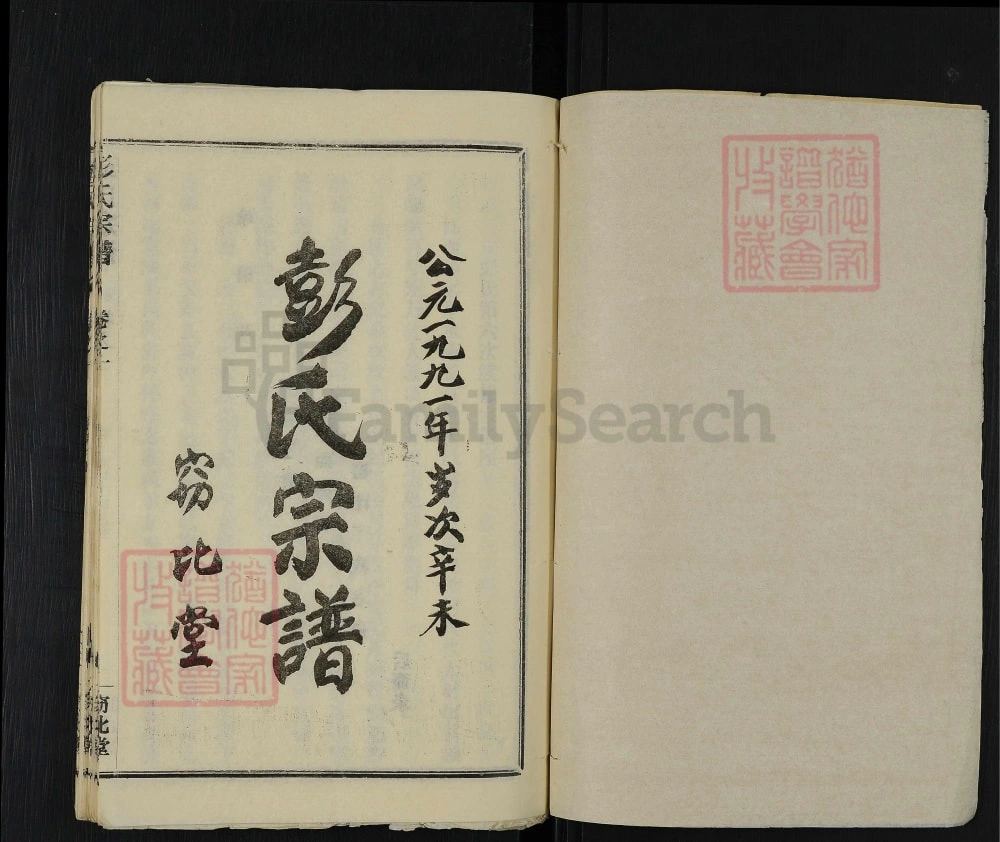 公元一九九一年岁次辛未
彭氏宗譜
窃比堂
彭氏宗譜
卷之一
窃比堂
猶他家
譜學會
特藏
猶他家
譜學會
特藏
FamilySearch